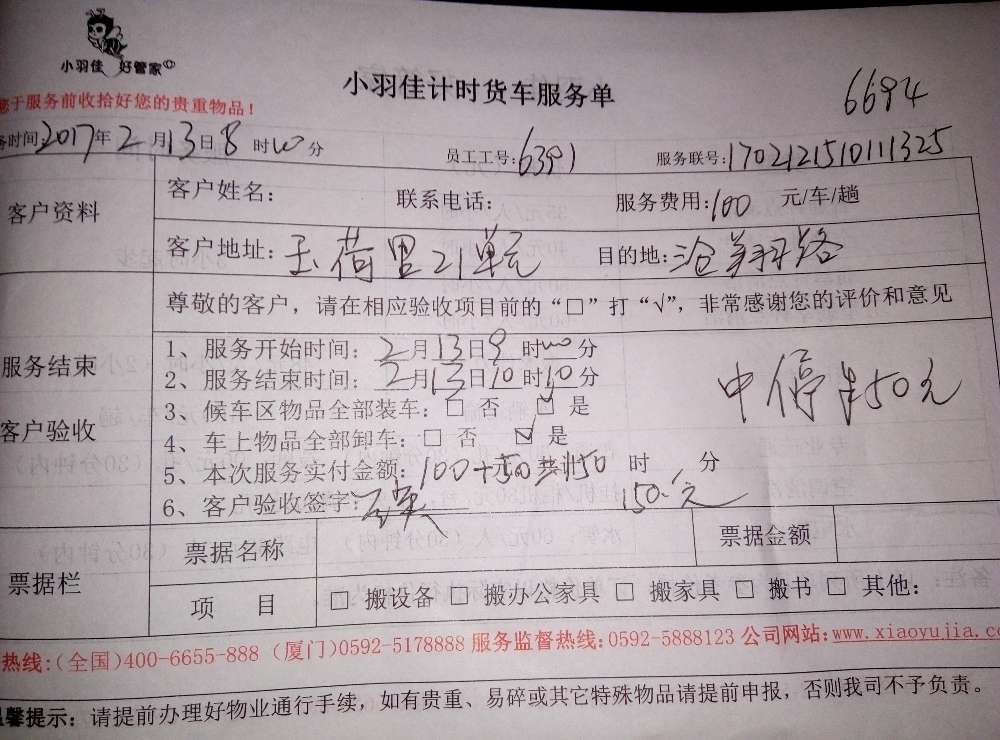 小羽佳 好管家
小羽佳计时货车服务单
6694
您于服务前收拾好您的贵重物品！
务时间:2017年2月13日8时00分 员工工号:6391 服务联号:1702121510111325
客户资料
客户姓名: 联系电话: 服务费用:100 元/车/趟
客户地址:玉荷里21单元 目的地:沧翔路
尊敬的客户，请在相应验收项目前的“□”打“√”，非常感谢您的评价和意见
服务结束
客户验收
1、服务开始时间:2月13日9时00分
2、服务结束时间:2月13日10时10分
3、候车区物品全部装车:□ 否 ☑ 是
4、车上物品全部卸车:□ 否 ☑ 是
5、本次服务实付金额:100+50共150 时 分
6、客户验收签字: 150.元
中停车50元
票据栏
票据名称 票据金额
项 目 □ 搬设备 □ 搬办公家具 □ 搬家具 □ 搬书 □ 其他:
热线:(全国)400-6655-888 (厦门)0592-5178888 服务监督热线:0592-5888123 公司网站:www.xiaoyujia.co
温馨提示: 请提前办理好物业通行手续，如有贵重、易碎或其它特殊物品请提前申报，否则我司不予负责。